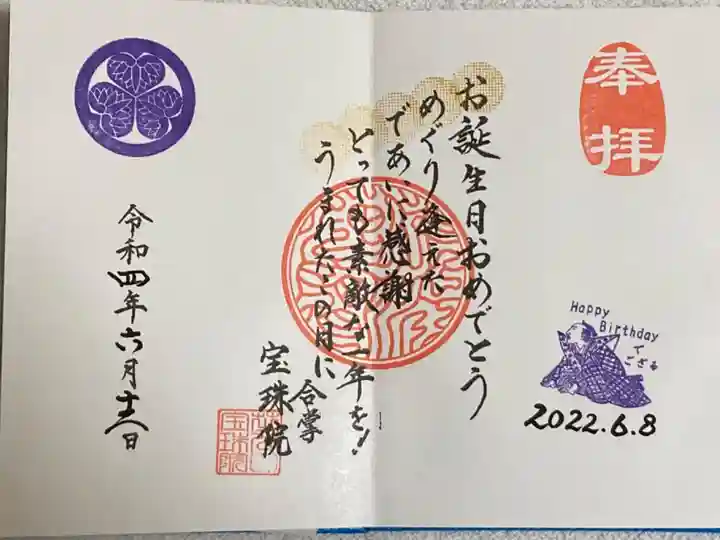 奉拝
Happy
Birthday
で
ござる
2022.6.8
お誕生日おめでとう
めぐり逢えた
であいに感謝
とっても素敵な一年を!
うまれたこの日に
合掌
宝珠院
宝珠院
令和四年六月十八日